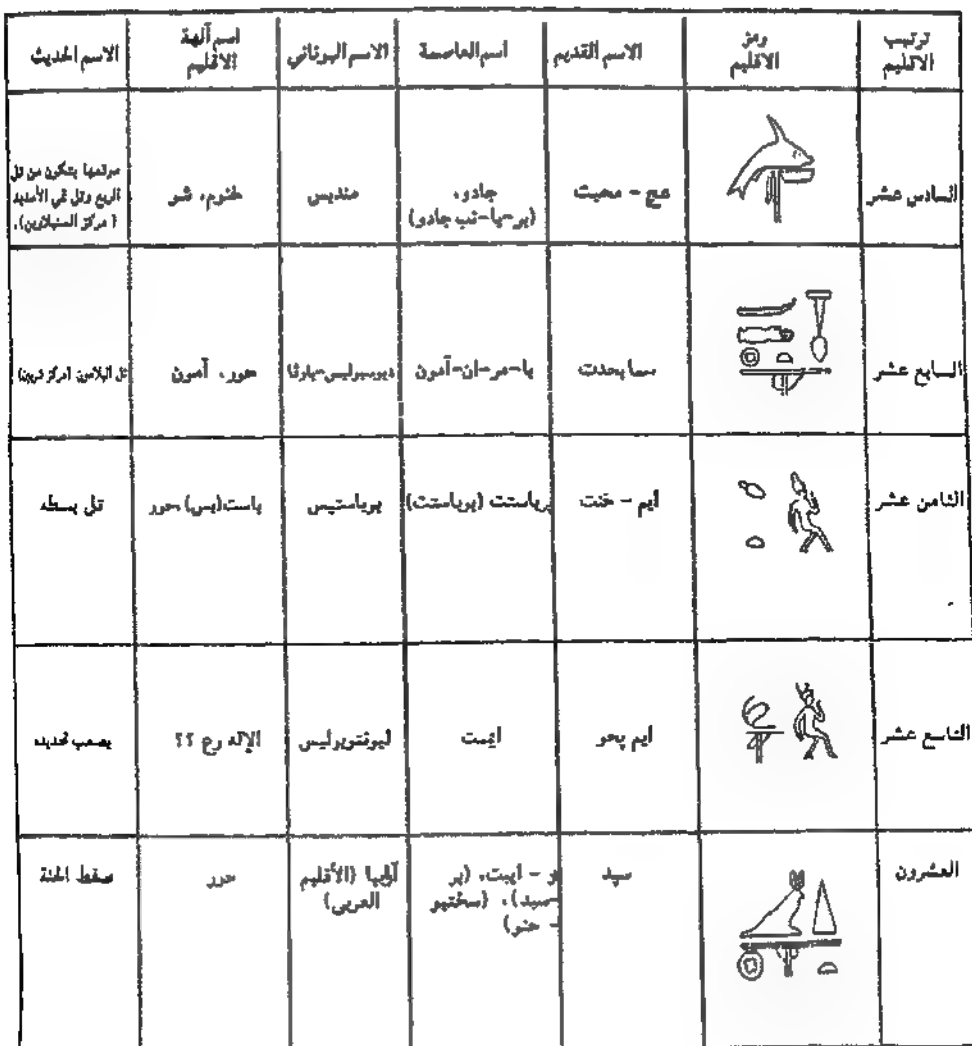 ترتيب الاقليم
رمز الاقليم
الاسم القديم
اسم العاصمة
الاسم اليوناني
اسم آلهة الاقليم
الاسم الحديث
السادس عشر
عج - محيت
جادو،
(بر-با-نب جادو)
منديس
خنوم، شو
موقعها يتكون من تل
الربع وتل تمي الأمديد
(مركز السنبلاوين).
السابع عشر
سما بحدت
با-مر-ان-آمون
ديوسبوليس-بارفا
حور، آمون
تل البلامون (مركز شربين)
الثامن عشر
ايم - خنت
برباستت (بوباستت)
بوباستيس
باست(بس) حور
تل بسطه
التاسع عشر
ايم پحو
ايمت
ليونتوبوليس
الإله رع ؟؟
يصعب تحديده
العشرون
سپد
و - ايبت، (بر
-سبد)، (سختيو
- حنو)
آرابيا (الأقليم
العربي)
حور
صفط الحنة